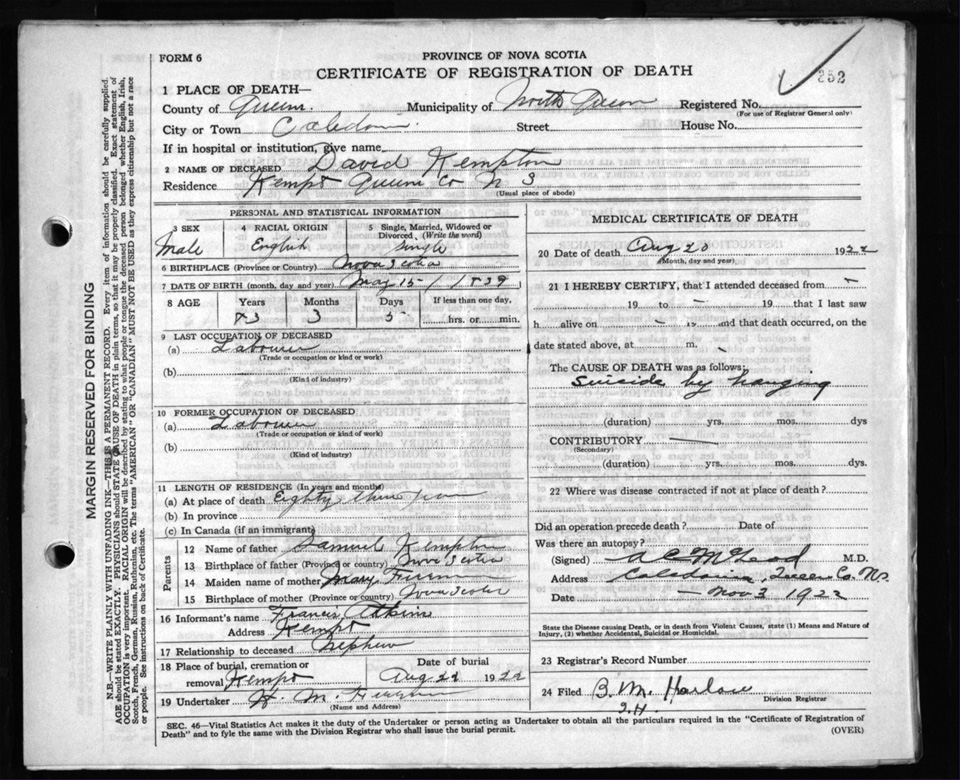 FORM 6
PROVINCE OF NOVA SCOTIA
CERTIFICATE OF REGISTRATION OF DEATH
352
1 PLACE OF DEATH—
County of Queens. Municipality of North Queen Registered No.
(For use of Registrar General only)
City or Town Caledonia Street House No.
If in hospital or institution, give name
2 NAME OF DECEASED David Kempton
Residence Kempt Queens Co N S
(Usual place of abode)
PERSONAL AND STATISTICAL INFORMATION
3 SEX 4 RACIAL ORIGIN 5 Single, Married, Widowed or
Divorced. (Write the word)
Male English Single
6 BIRTHPLACE (Province or Country) Nova Scotia
7 DATE OF BIRTH (month, day and year) May 15 - / 1839
8 AGE Years Months Days If less than one day,
83 3 5 hrs. or min.
9 LAST OCCUPATION OF DECEASED
(a) Labourer
(Trade or occupation or kind or work)
(b)
(Kind of industry)
10 FORMER OCCUPATION OF DECEASED
(a) Labourer
(Trade or occupation or kind of work)
(b)
(Kind of industry)
11 LENGTH OF RESIDENCE (In years and months)
(a) At place of death Eighty three years
(b) In province
(c) In Canada (if an immigrant)
Parents
12 Name of father Samuel Kempton
13 Birthplace of father (Province or country) Nova Scotia
14 Maiden name of mother Mary
15 Birthplace of mother (Province or country) Nova Scotia
16 Informant's name Francis
Address Kempt
17 Relationship to deceased Nephew
18 Place of burial, cremation or Date of burial
removal Kempt Aug 22 1922
19 Undertaker H. M.
(Name and Address)
MEDICAL CERTIFICATE OF DEATH
20 Date of death Aug 20 1922
(Month, day and year)
21 I HEREBY CERTIFY, that I attended deceased from —
19 to — 19 that I last saw
h alive on — 19 and that death occurred, on the
date stated above, at m.
The CAUSE OF DEATH was as follows:
Suicide by hanging
(duration) yrs. mos. dys
CONTRIBUTORY —
(Secondary)
(duration) yrs. mos. dys.
22 Where was disease contracted if not at place of death?
Did an operation precede death? Date of
Was there an autopsy?
(Signed) A C McLeod M.D.
Address Caledonia, Queens Co. N.S.
Date — Nov 3 1922
State the Disease causing Death, or in death from Violent Causes, state (1) Means and Nature of
Injury, (2) whether Accidental, Suicidal or Homicidal.
23 Registrar's Record Number
24 Filed B. M. Harlow
Division Registrar
SEC. 46—Vital Statistics Act makes it the duty of the Undertaker or person acting as Undertaker to obtain all the particulars required in the "Certificate of Registration of
Death" and to fyle the same with the Division Registrar who shall issue the burial permit.
(OVER)
MARGIN RESERVED FOR BINDING
N.B.—WRITE PLAINLY WITH UNFADING INK—THIS IS A PERMANENT RECORD. Every item of information should be carefully supplied.
AGE should be stated EXACTLY. PHYSICIANS should STATE CAUSE OF DEATH in plain terms, so that it may be properly classified. Exact statement of
OCCUPATION is very important. RACIAL ORIGIN will be described by stating to what people or tongue the deceased person belonged whether English, Irish,
Scotch, French, German, Russian, Ruthenian, etc. The terms "AMERICAN" or "CANADIAN" MUST NOT BE USED as they express citizenship but not a race
or people. See instructions on back of Certificate.